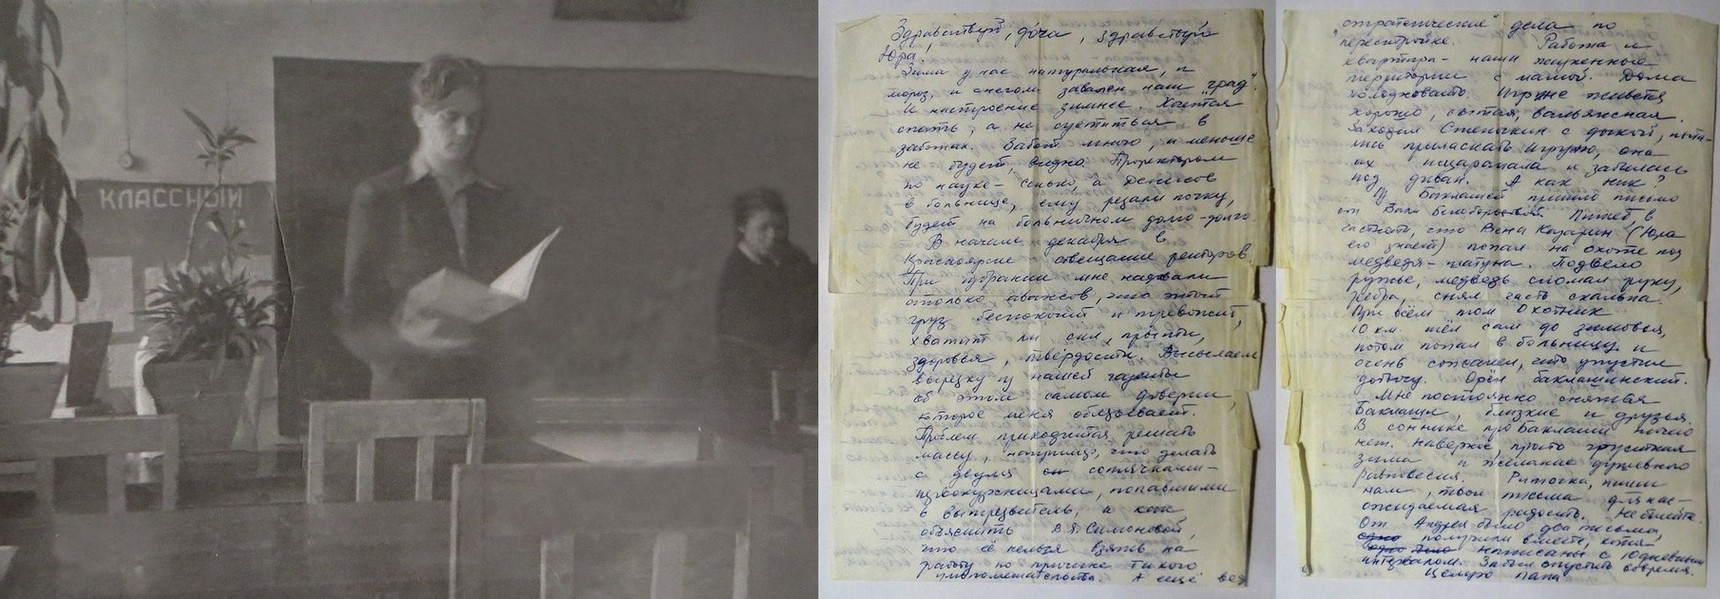 КЛАССНЫЙ
Здравствуй, доча, здравствуй
Юра!
Зима у нас натуральная, и
мороз, и снегом завален наш "град".
И настроение зимнее. Хочется
спать, а не суетиться в
заботах. Забот много, и меньше
не будет, видно. Проректором
по науке - сижу, а Денисов
в больнице, ему резали почку,
будет на больничном долго-долго.
В начале декабря в
Красноярске совещание ректоров.
При избрании мне надавали
столько авансов, что этот
груз беспокоит и тревожит,
хватит ли сил, прыти,
здоровья, твердости. Высылаем
вырезку из нашей газеты
об этом самом доверии,
которое меня обязывает.
Проблем приходится решать
массу, например, что делать
с двумя
первокурсницами, попавшими
в вытрезвитель, а как
объяснить В.Я. Симоновой,
что её нельзя взять на
работу по причине тихого
помешательства. А ещё все
стратегические дела по
перестройке. Работа и
квартира - наши
территории с мамой. Дома
холодновато. Игруже живётся
хорошо, сытая, вальяжная.
Заходил Степочкин с дочкой, пыта-
лись приласкать Игружу, она
их исцарапала и забилась
под диван. А как Ник?
У Баклашей пришло письмо
от Вали Пишет в
частности, что Вена Казарин (Юра
его знает) попал на охоте под
медведя-шатуна. Подвело
ружье, медведь сломал руку,
ребра, снял часть скальпа.
При всём том охотник
10 км. шёл сам до зимовья,
потом попал в больницу и
очень сожалел, что упустил
добычу. Орёл баклашинский.
Мне постоянно снятся
Баклаши, близкие и друзья.
В соннике про Баклаши ничего
нет. Наверное, просто грустная
зима и желание душевного
равновесия. Риточка, пиши
нам, твои письма для нас -
ожидаемая радость. Не болейте.
От Андрея было два письма,
получили вместе, хотя
написаны с 10дневным
интервалом. Забыл опустить вовремя.
Целую папа